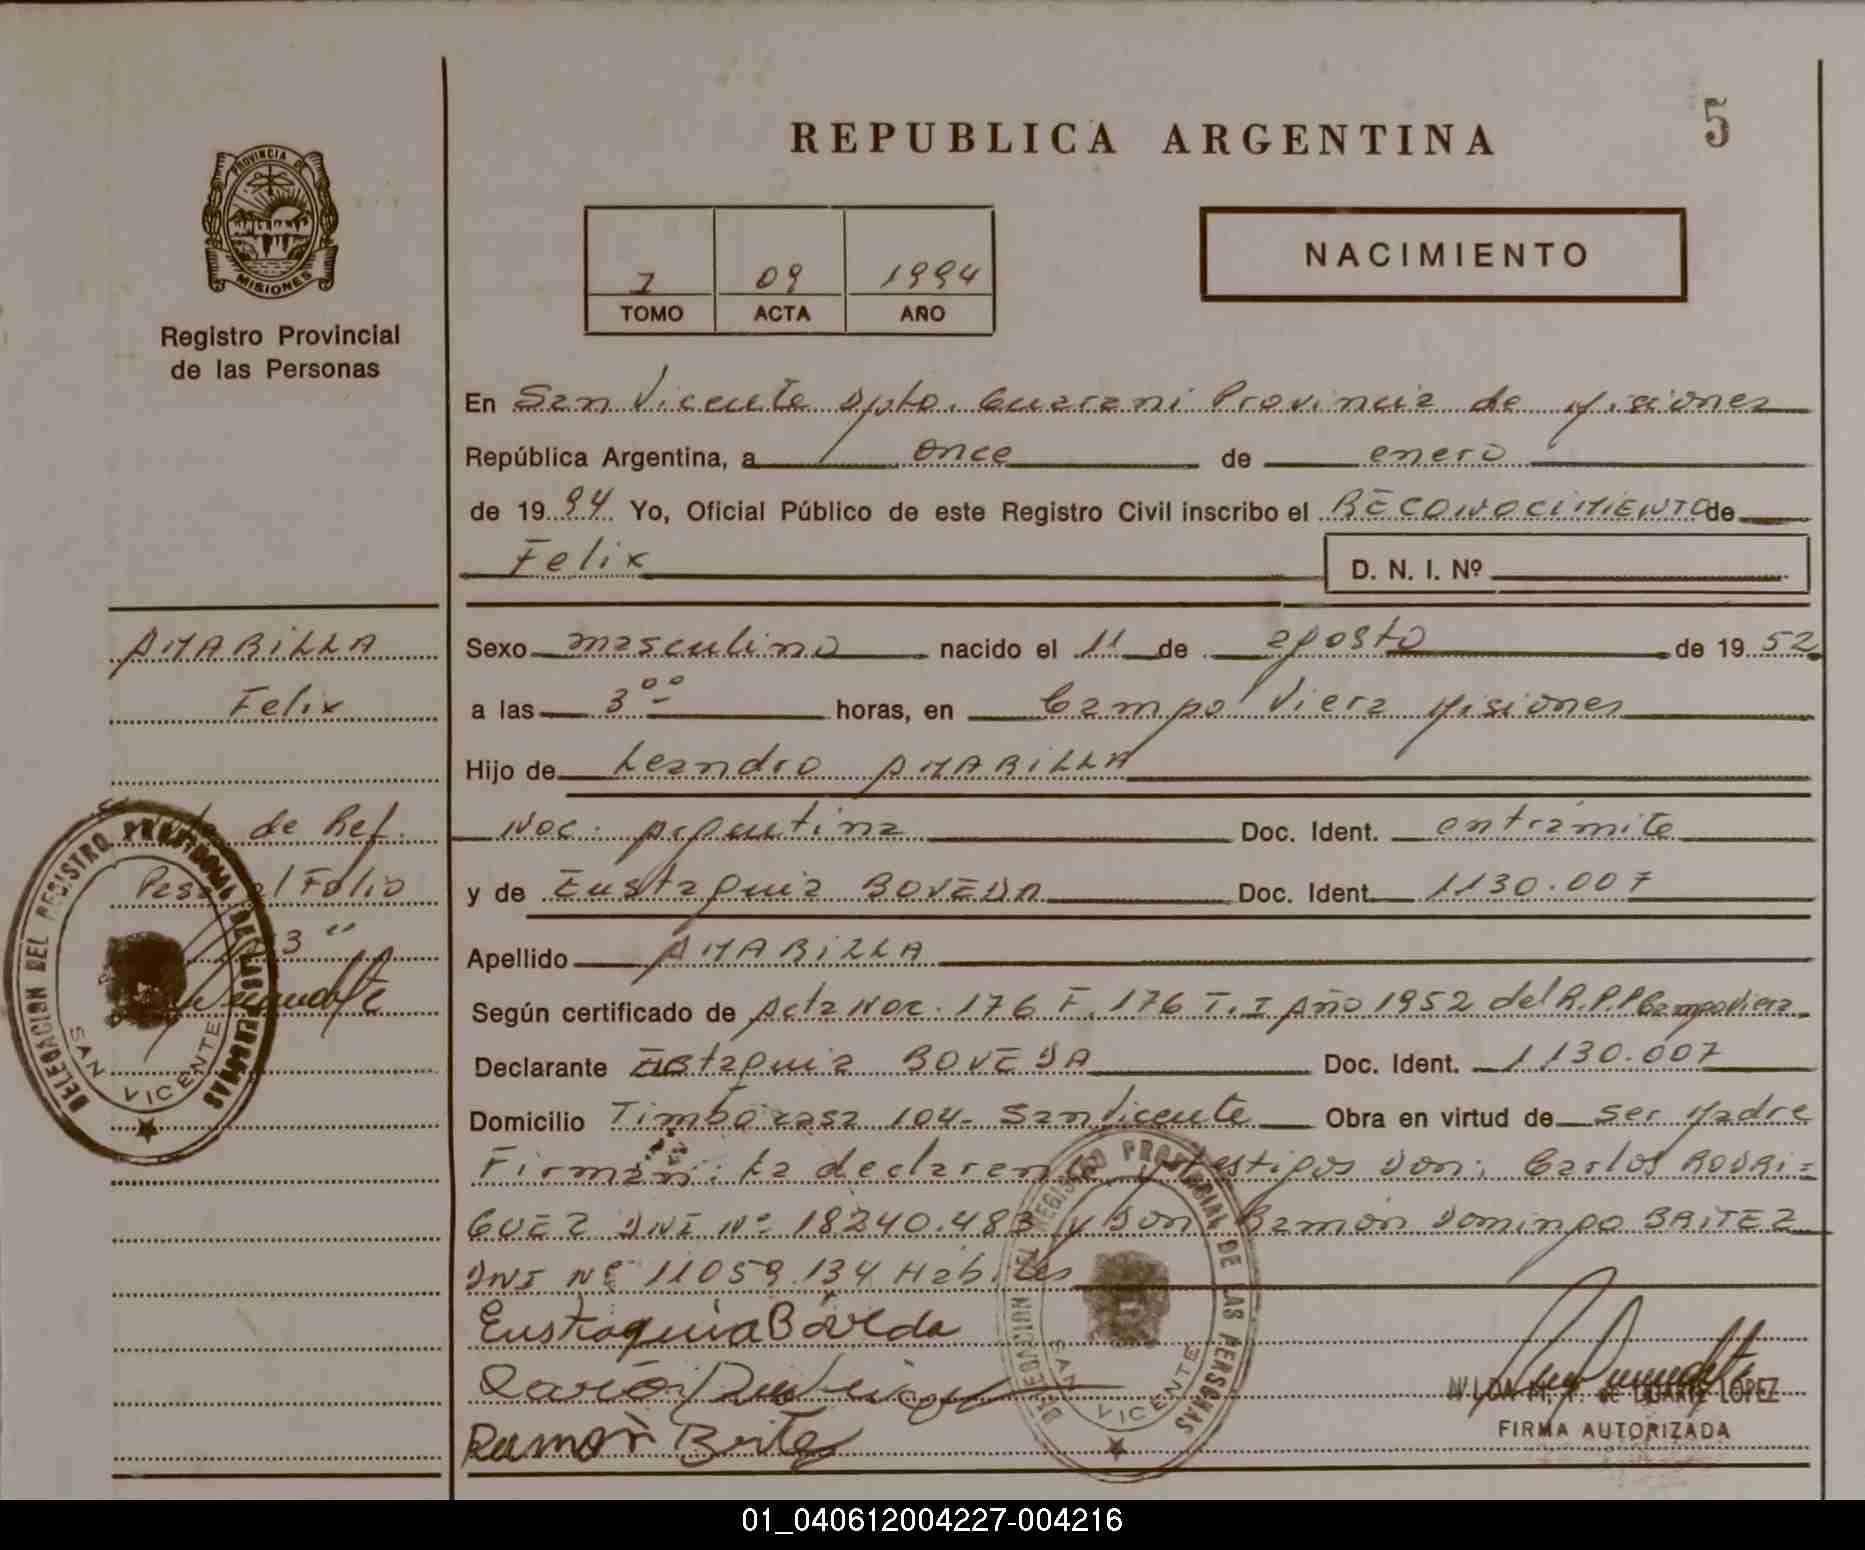 5
REPUBLICA ARGENTINA
PROVINCIA DE
MISIONES
Registro Provincial
de las Personas
NACIMIENTO
I 09 1994
TOMO ACTA AÑO
En San Vicente Dpto. Guarani Provincia de Misiones
República Argentina, a once de enero
de 1994 Yo, Oficial Público de este Registro Civil inscribo el RECONOCIMIENTO de
Felix
D. N. I. Nº
AMARILLA
Felix
de Ref.
Folio
3
Sexo masculino nacido el 11 de agosto de 1952
a las 3⁰⁰ horas, en Campo Viera Misiones
Hijo de Leandro AMARILLA
Nac. Argentina Doc. Ident. en trámite
y de Eustaquia BOVEDA Doc. Ident. 1130.007
Apellido AMARILLA
Según certificado de Acta Nac. 176 F. 176 T. I Año 1952 del R.P.P Campo Viera
Declarante Eustaquia BOVEDA Doc. Ident. 1130.007
Domicilio Timbó 104- San Vicente Obra en virtud de ser Madre
Firman: La declarente y testigos Don: Carlos RODRI=
GUEZ DNI Nº 18240.483 y Don Ramón Domingo BRITEZ
DNI Nº 11059.134 Habiles
Eustaquia Bóveda
Ramón Britez
DUARTE LOPEZ
FIRMA AUTORIZADA
DELEGACION DEL REGISTRO PROVINCIAL DE LAS PERSONAS
SAN VICENTE
DELEGACION DEL REGISTRO PROVINCIAL DE LAS PERSONAS
SAN VICENTE
01_040612004227-004216